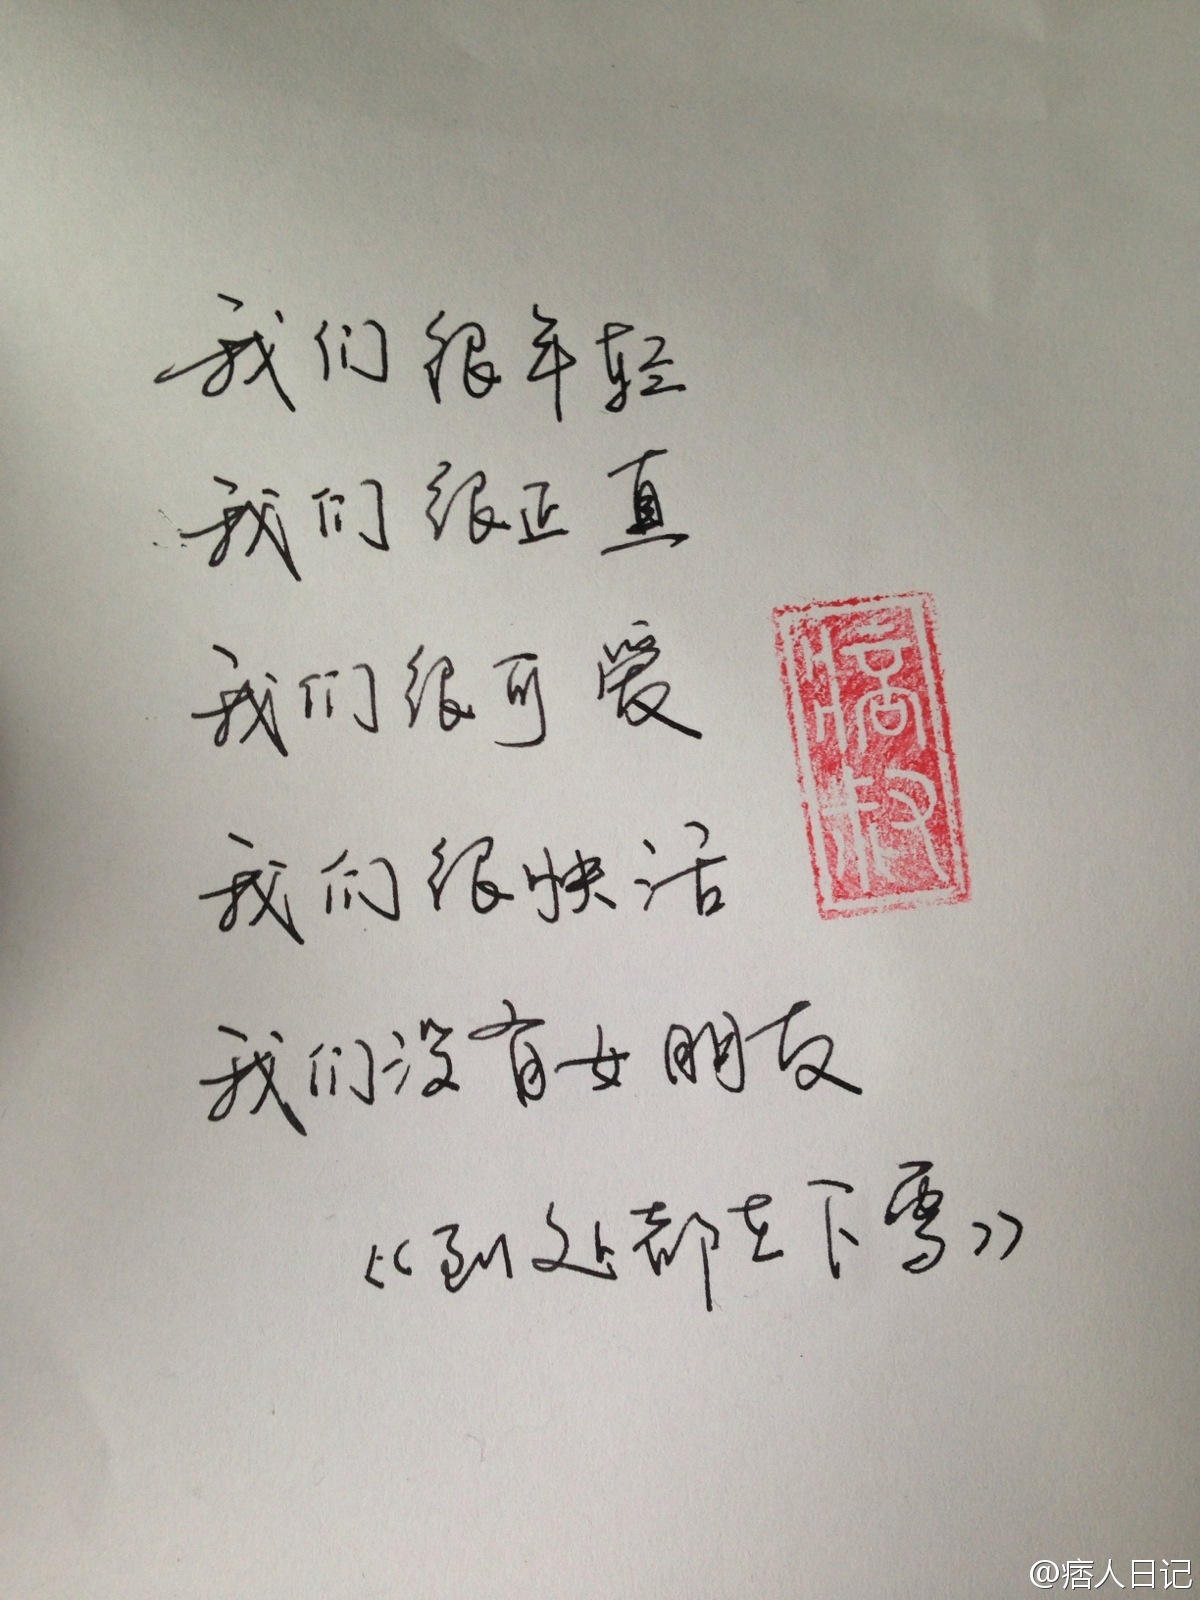 我们很年轻
我们很正直
我们很可爱
我们很快活
我们没有女朋友
《到处都在下雪》
痞叔
@痞人日记